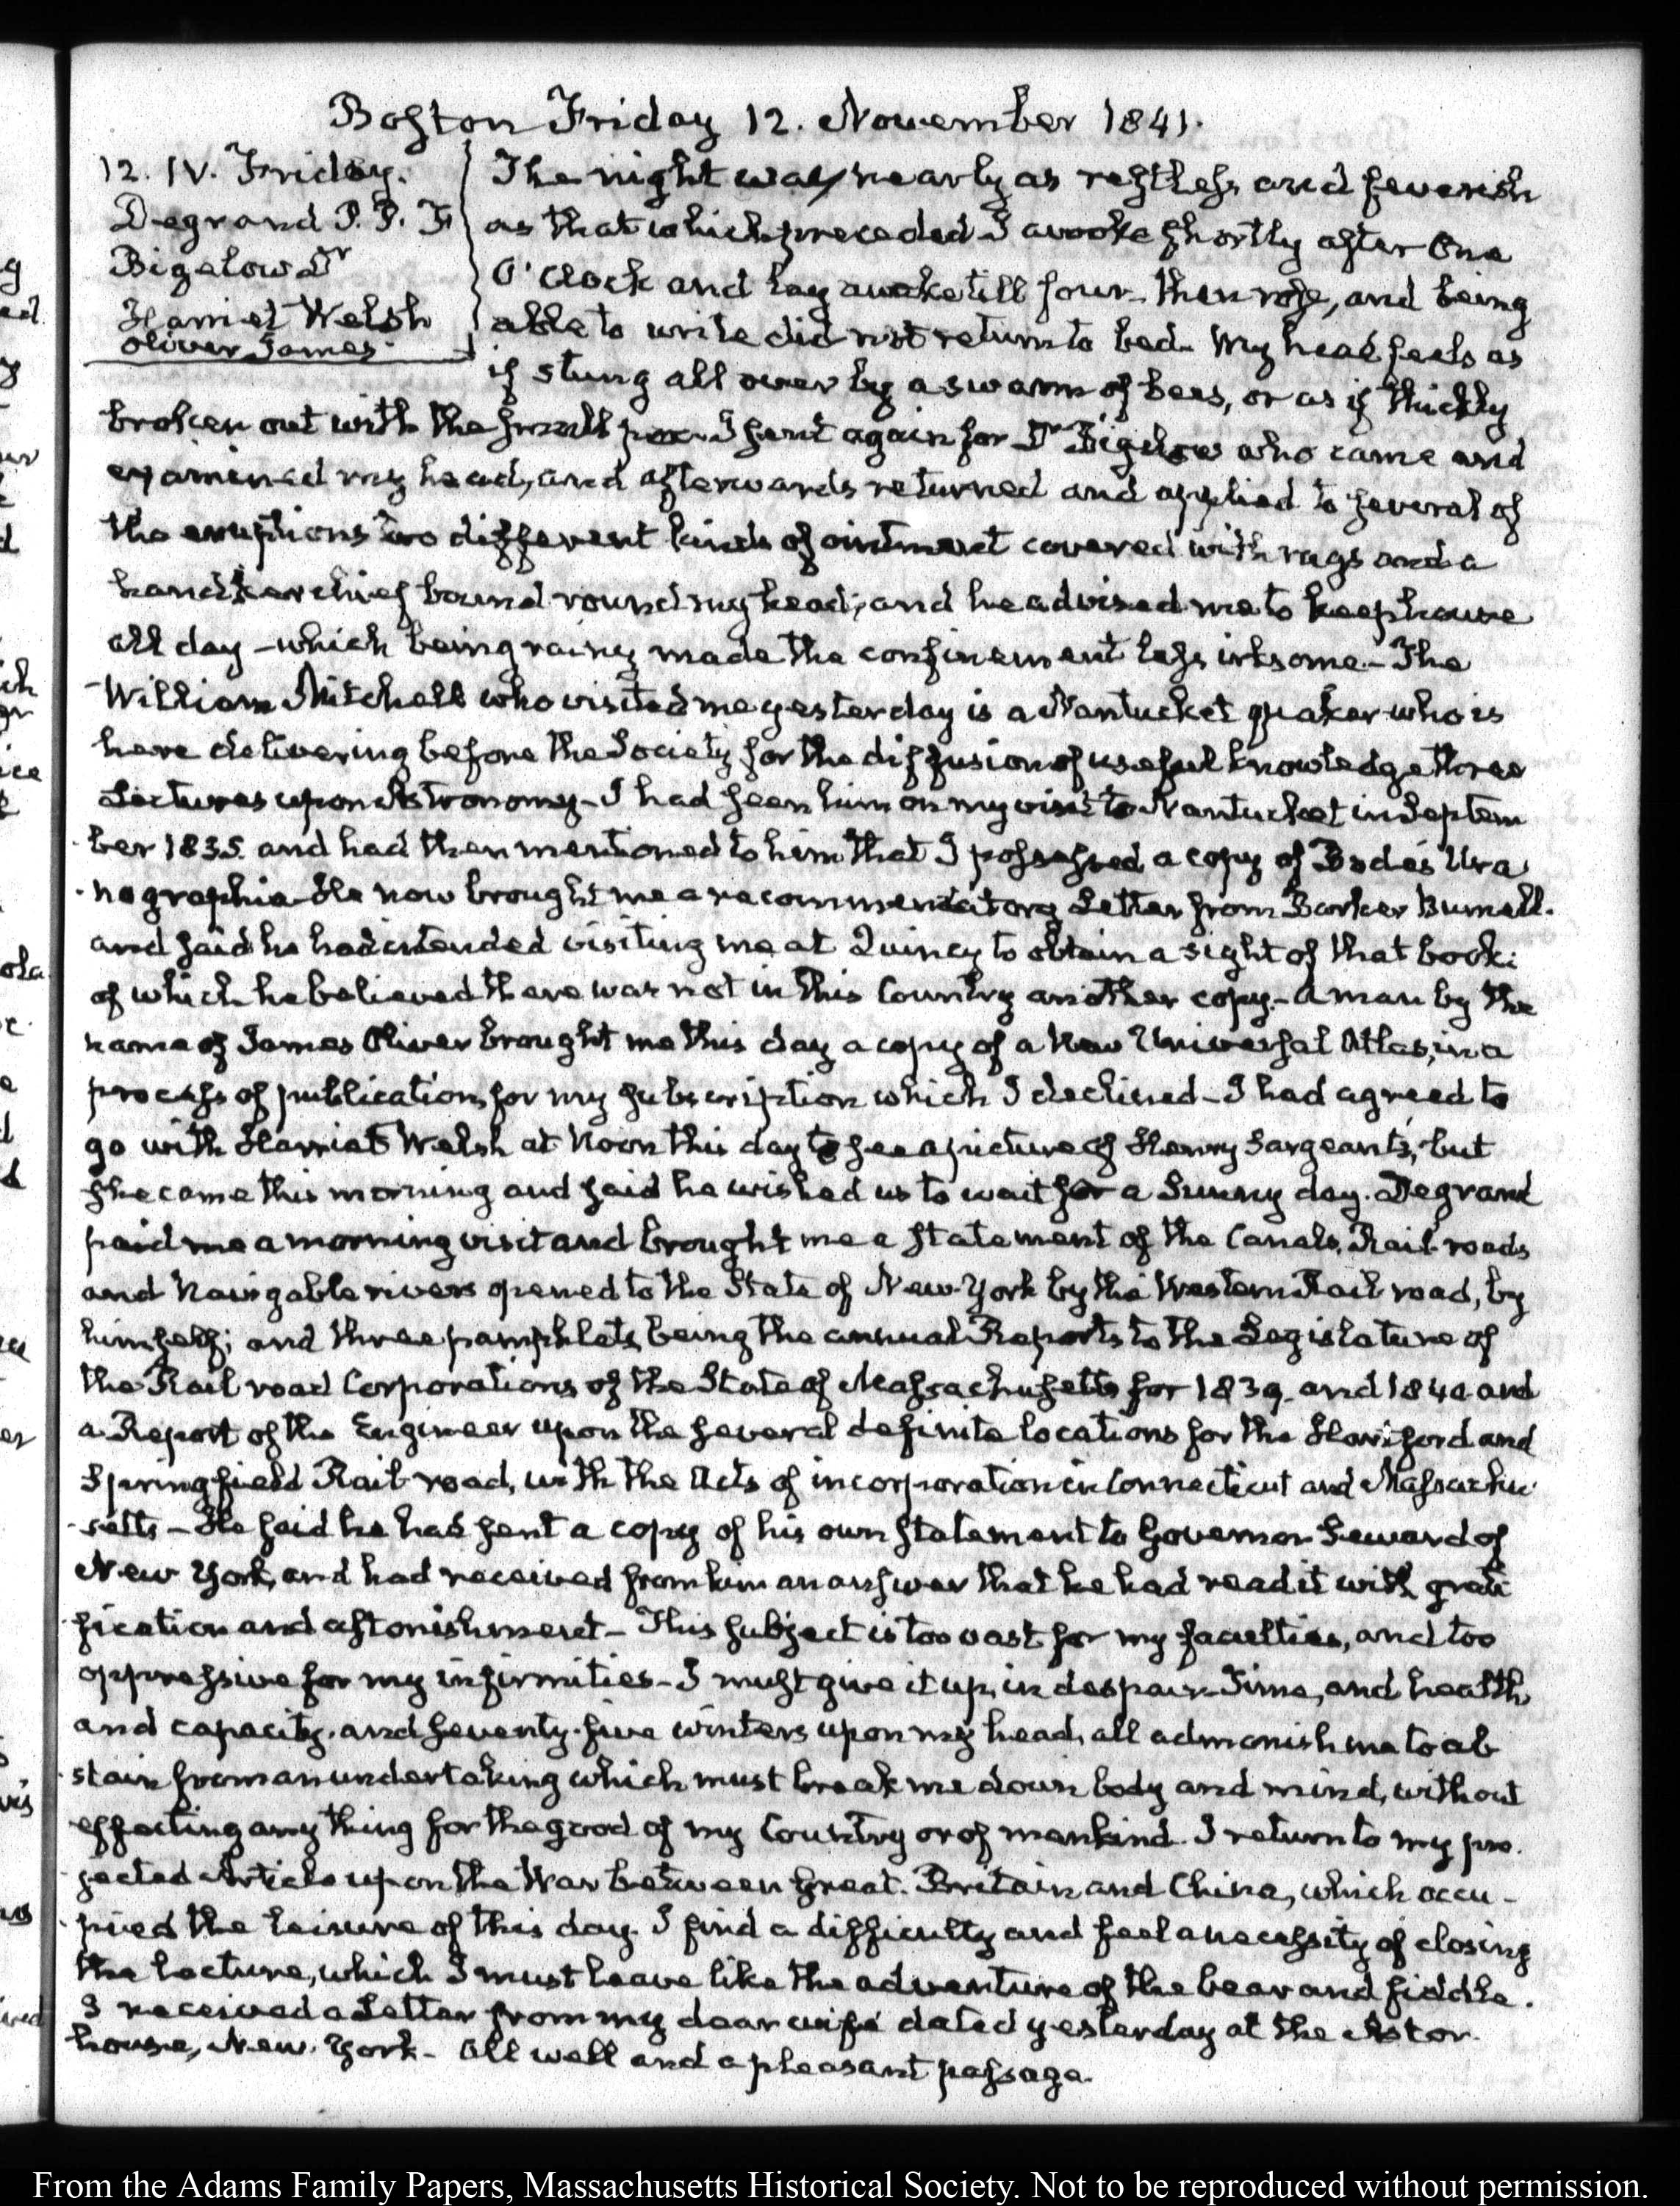 Boston Friday 12. November 1841.
12. IV. Friday.
Degrand P. P. F
Bigelow Dr
Harriet Welsh
Oliver James
The night was nearly as restless and feverish
as that which preceded I awoke shortly after One
O'Clock and lay awake till four. then rose, and being
able to write did not return to bed. My head feels as
if stung all over by a swarm of bees, or as if thickly
broken out with the small pox. I sent again for Dr Bigelow who came and
examined my head, and afterwards returned and applied to several of
the eruptions two different kinds of ointment covered with rags and a
handkerchief bound round my head; and he advised me to keep house
all day – which being rainy made the confinement less irksome – The
William Mitchell who visited me yesterday is a Nantucket quaker who is
here delivering before the Society for the diffusion of useful knowledge three
Lectures upon Astronomy – I had seen him on my visit to Nantucket in Septem
ber 1835. and had then mentioned to him that I possessed a copy of Bode's Ura
nographia – He now brought me a recommendatory Letter from Barker Burnell.
and said he had intended visiting me at Quincy to obtain a sight of that book:
of which he believed there was not in this Country another copy. – A man by the
name of James Oliver brought me this day a copy of a New Universal Atlas, in a
process of publication, for my subscription which I declined – I had agreed to
go with Harriet Welsh at Noon this day to see a picture of Henry Sargeant's, but
she came this morning and said he wished us to wait for a Sunny day. Degrand
paid me a morning visit and brought me a statement of the Canals, Rail-roads
and Navigable rivers opened to the State of New-York by the Western Rail road, by
himself; and three pamphlets, being the annual Reports to the Legislature of
the Rail road Corporations of the State of Massachusetts for 1839. and 1840. and
a Report of the Engineer upon the several definite locations for the Hartford and
Springfield Rail-road, with the Acts of incorporation in Connecticut and Massachu
setts – He said he had sent a copy of his own statement to Governor Seward of
New York, and had received from him an answer that he had read it with grati
fication and astonishment – This subject is too vast for my faculties, and too
oppressive for my infirmities – I must give it up, in despair – Time, and health,
and capacity, and seventy-five winters upon my head, all admonish me to ab
stain from an undertaking which must break me down body and mind, without
effecting any thing for the good of my Country or of mankind. I return to my pro
jected Article upon the War between Great-Britain and China, which occu
pied the leisure of this day. I find a difficulty and feel a necessity of closing
the lecture, which I must leave like the adventure of the bear and fiddle.
I received a Letter from my dear wife dated yesterday at the Astor
house, New-York – All well and a pleasant passage.
From the Adams Family Papers, Massachusetts Historical Society. Not to be reproduced without permission.